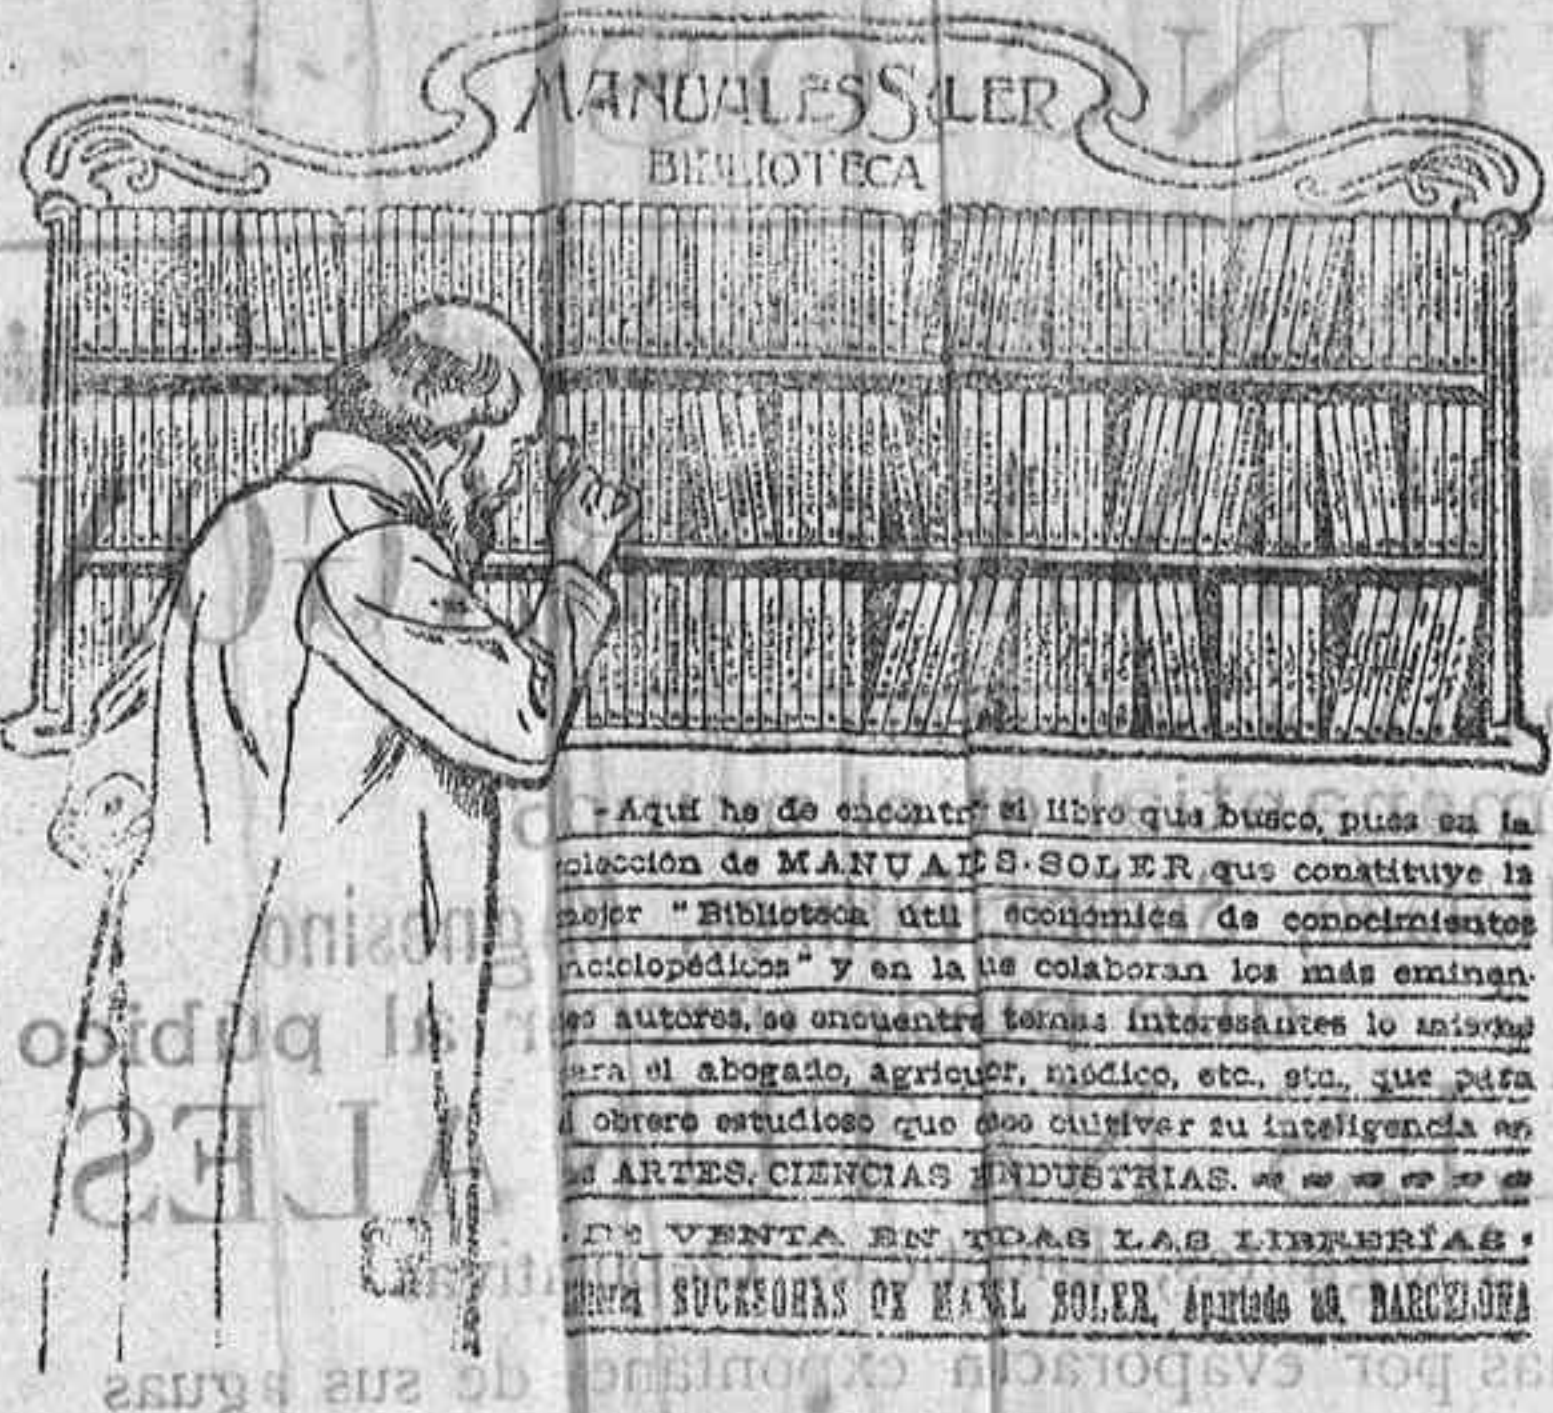 MANUALES SOLER
BIBLIOTECA
- Aquí he de encontr el libro que busco, pues en la
olección de MANUALES-SOLER que constituye la
mejor "Biblioteca útil económica de conocimientos
nciclopédicos" y en la ue colaboran los más eminen-
es autores, se encuentra temas interesantes lo mismo
ara el abogado, agricuor, médico, etc., etc., que para
l obrero estudioso que cultivar su inteligencia en
s ARTES, CIENCIAS INDUSTRIAS.
· DE VENTA EN TDAS LAS LIBRERÍAS ·
SUCESORES DE MAEL SOLER, Apartado 89, BARCELONA